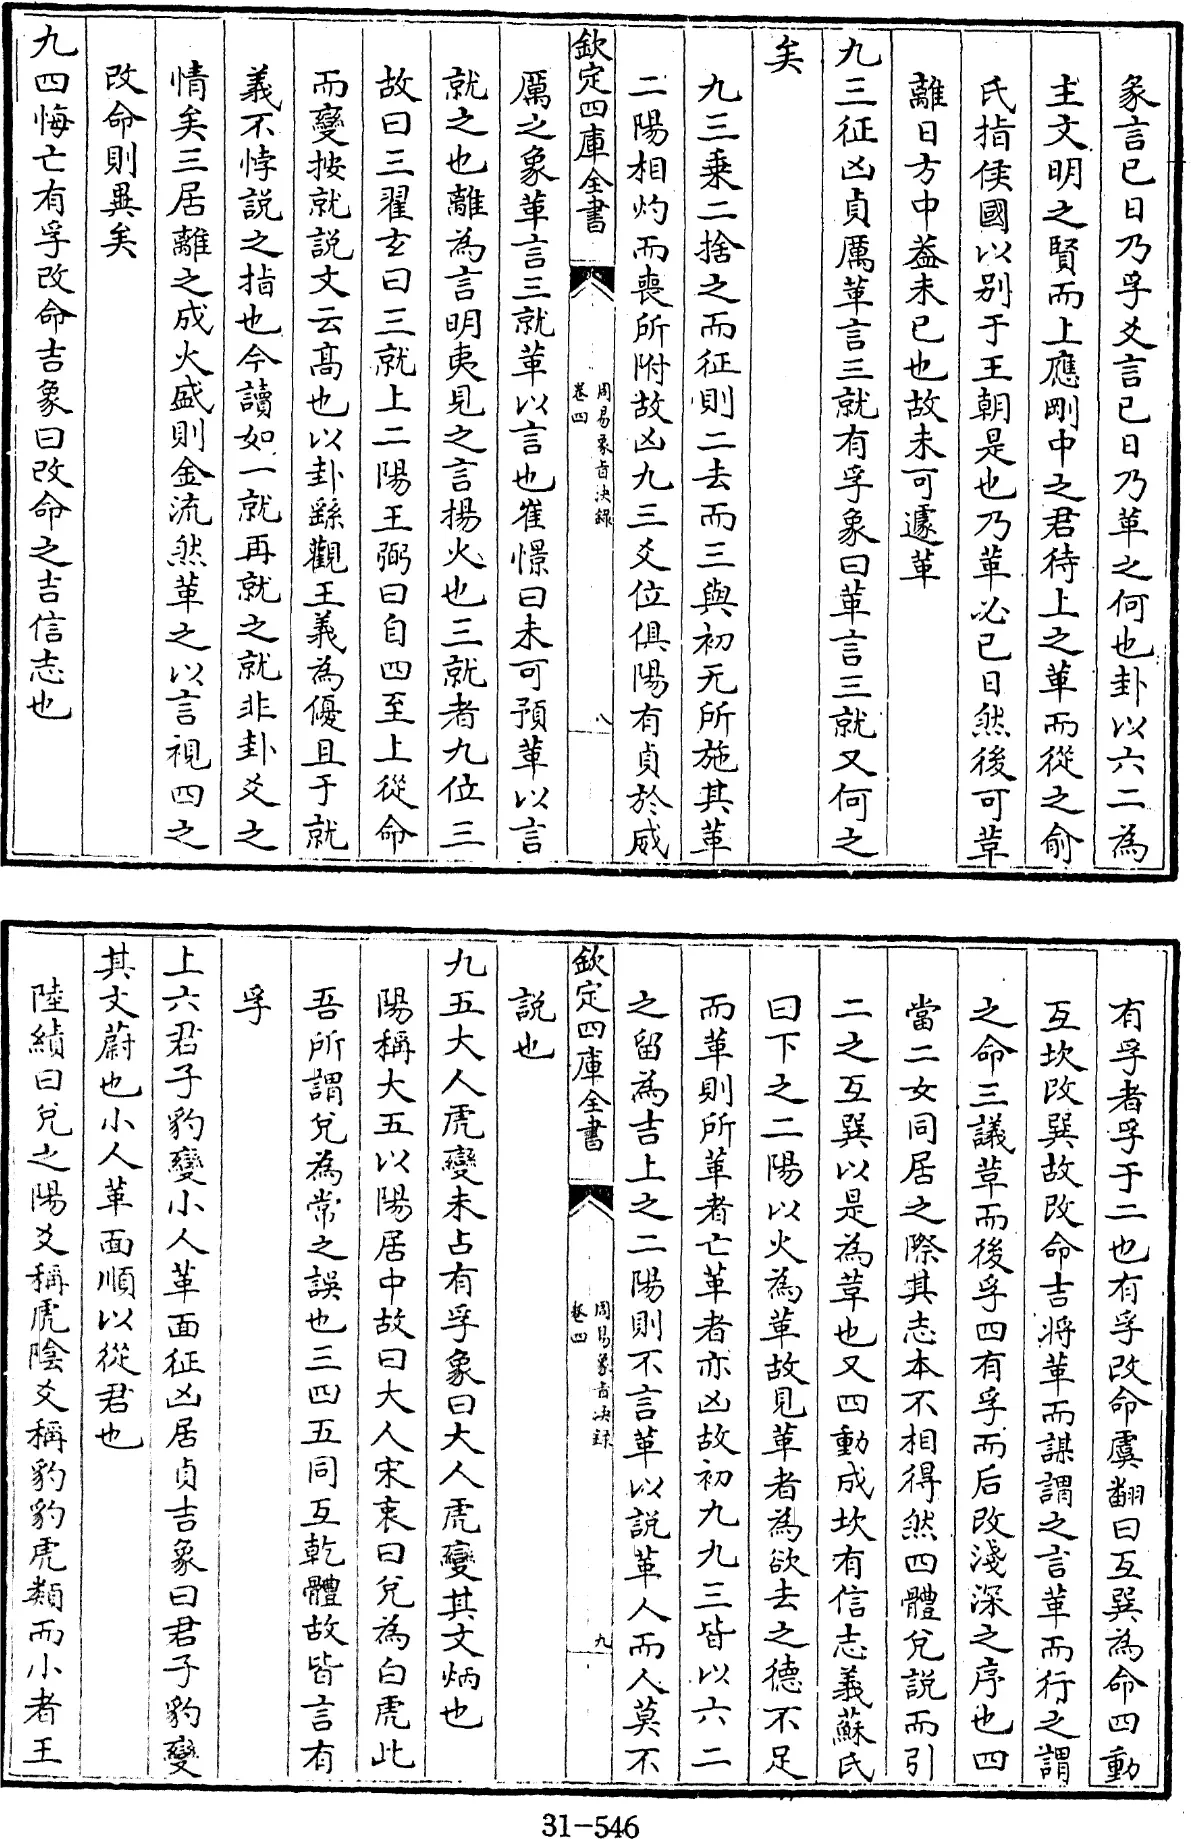 彖言已日乃孚爻言已日乃革之何也卦以六二為
主文明之賢而上應剛中之君待上之革而從之俞
氏指侯國以别于王朝是也乃革必已日然後可革
離日方中蓋未已也故未可遽革
九三征凶貞厲革言三就有孚象曰革言三就又何之
矣
九三乗二捨之而征則二去而三與初无所施其革
二陽相灼而喪所附故凶九三爻位俱陽有貞於威
欽定四庫全書
周易象旨決録
卷四
八
厲之象革言三就革以言也崔憬曰未可預革以言
就之也離為言明夷見之言揚火也三就者九位三
故曰三翟玄曰三就上二陽王弼曰自四至上從命
而變按就説文云髙也以卦繇觀王義為優且于就
義不悖説之指也今讀如一就再就之就非卦爻之
情矣三居離之成火盛則金流然革之以言視四之
改命則異矣
九四悔亡有孚改命吉象曰改命之吉信志也
有孚者孚于二也有孚改命虞翻曰互巽為命四動
互坎改巽故改命吉將革而謀謂之言革而行之謂
之命三議革而後孚四有孚而后改淺深之序也四
當二女同居之際其志本不相得然四體兌説而引
二之互巽以是為革也又四動成坎有信志義蘇氏
曰下之二陽以火為革故見革者為欲去之德不足
而革則所革者亡革者亦凶故初九九三皆以六二
之留為吉上之二陽則不言革以説革人而人莫不
欽定四庫全書
周易象旨决録
卷四
九
説也
九五大人虎變未占有孚象曰大人虎變其文炳也
陽稱大五以陽居中故曰大人宋衷曰兌為白虎此
吾所謂兌為常之誤也三四五同互乾體故皆言有
孚
上六君子豹變小人革面征凶居貞吉象曰君子豹變
其文蔚也小人革面順以從君也
陸績曰兌之陽爻稱虎陰爻稱豹豹虎類而小者王
31-546